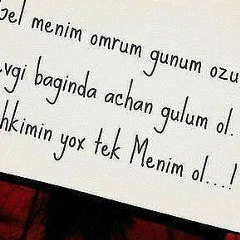 gel menim omrum gunum ozu
vgi baginda achan gulum ol.
hkimin yox tek Menim ol...!